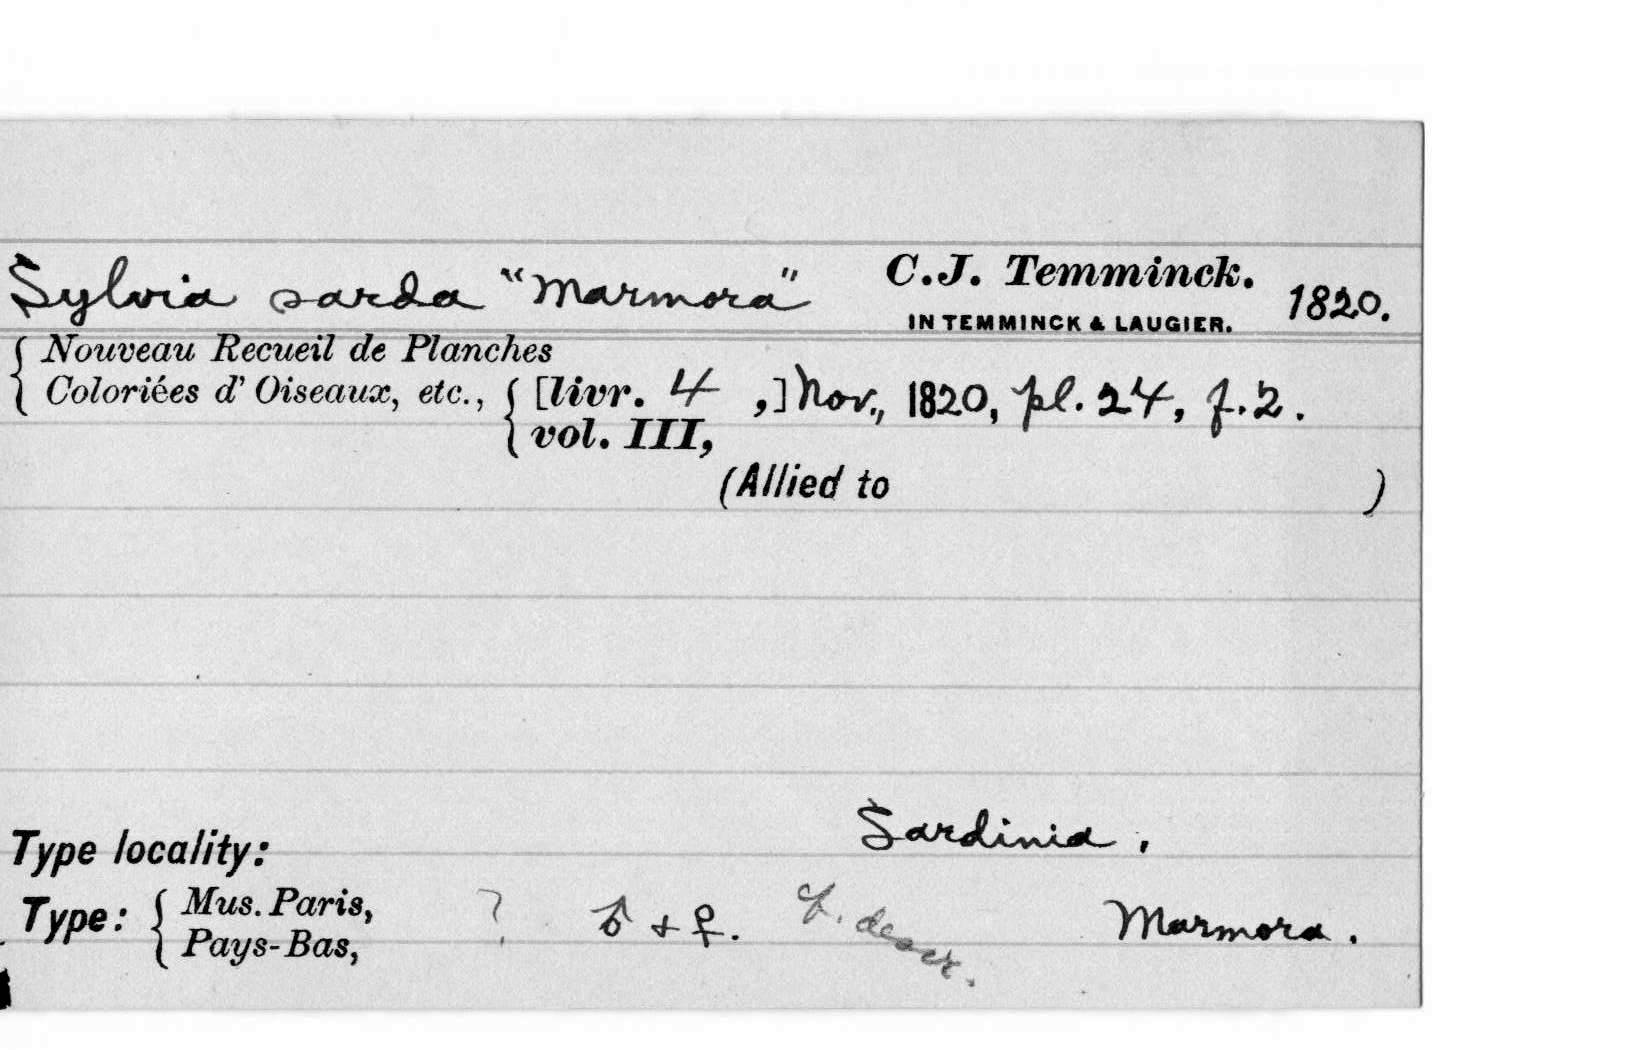 Sylvia sarda "Marmora" C.J. Temminck. 1820.
IN TEMMINCK & LAUGIER.
Nouveau Recueil de Planches
Coloriées d' Oiseaux, etc., [livr. 4 ,] Nov., 1820, pl. 24, f. 2.
vol. III,
(Allied to )
Type locality: Sardinia,
Type: Mus. Paris, ? ♂ + ♀. Cf. descr. Marmora.
Pays-Bas,